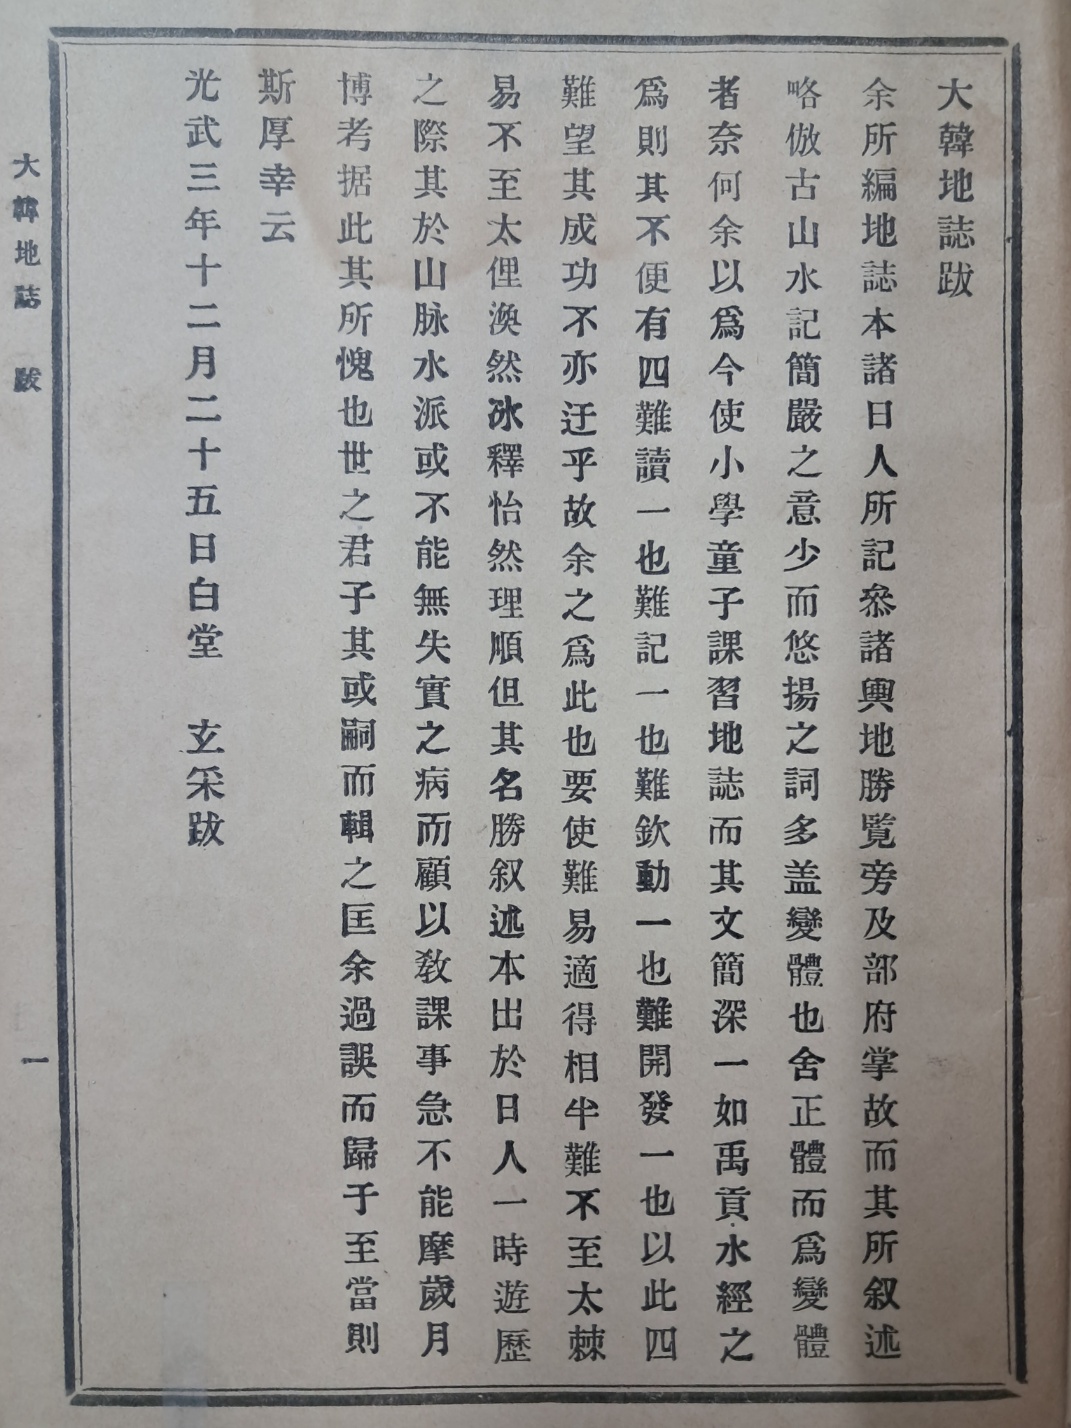 大韓地誌跋
余所編地誌本諸日人所記叅諸輿地勝覧旁及部府掌故而其所叙述
略倣古山水記簡嚴之意少而悠揚之詞多盖變體也舍正體而爲變體
者奈何余以爲今使小學童子課習地誌而其文簡深一如禹貢水經之
爲則其不便有四難讀一也難記一也難欽動一也難開發一也以此四
難望其成功不亦迂乎故余之爲此也要使難易適得相半難不至太棘
易不至太俚渙然氷釋怡然理順但其名勝叙述本出於日人一時遊歷
之際其於山脉水派或不能無失實之病而顧以敎課事急不能摩歲月
博考据此其所愧也世之君子其或嗣而輯之匡余過誤而歸于至當則
斯厚幸云
光武三年十二月二十五日白堂　玄采跋
大韓地誌　跋
一